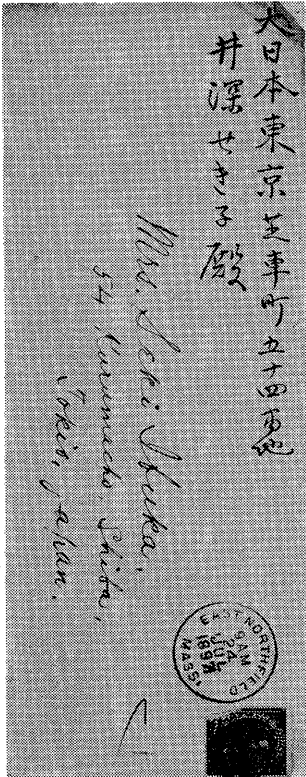 大日本東京芝車町五十四番地
井深せき子殿
Mrs. Seki Ibuka,
54, Kurumacho, Shiba,
Tokio, Japan.
EAST NORTHFIELD
9 AM
24
JUL
1897
MASS